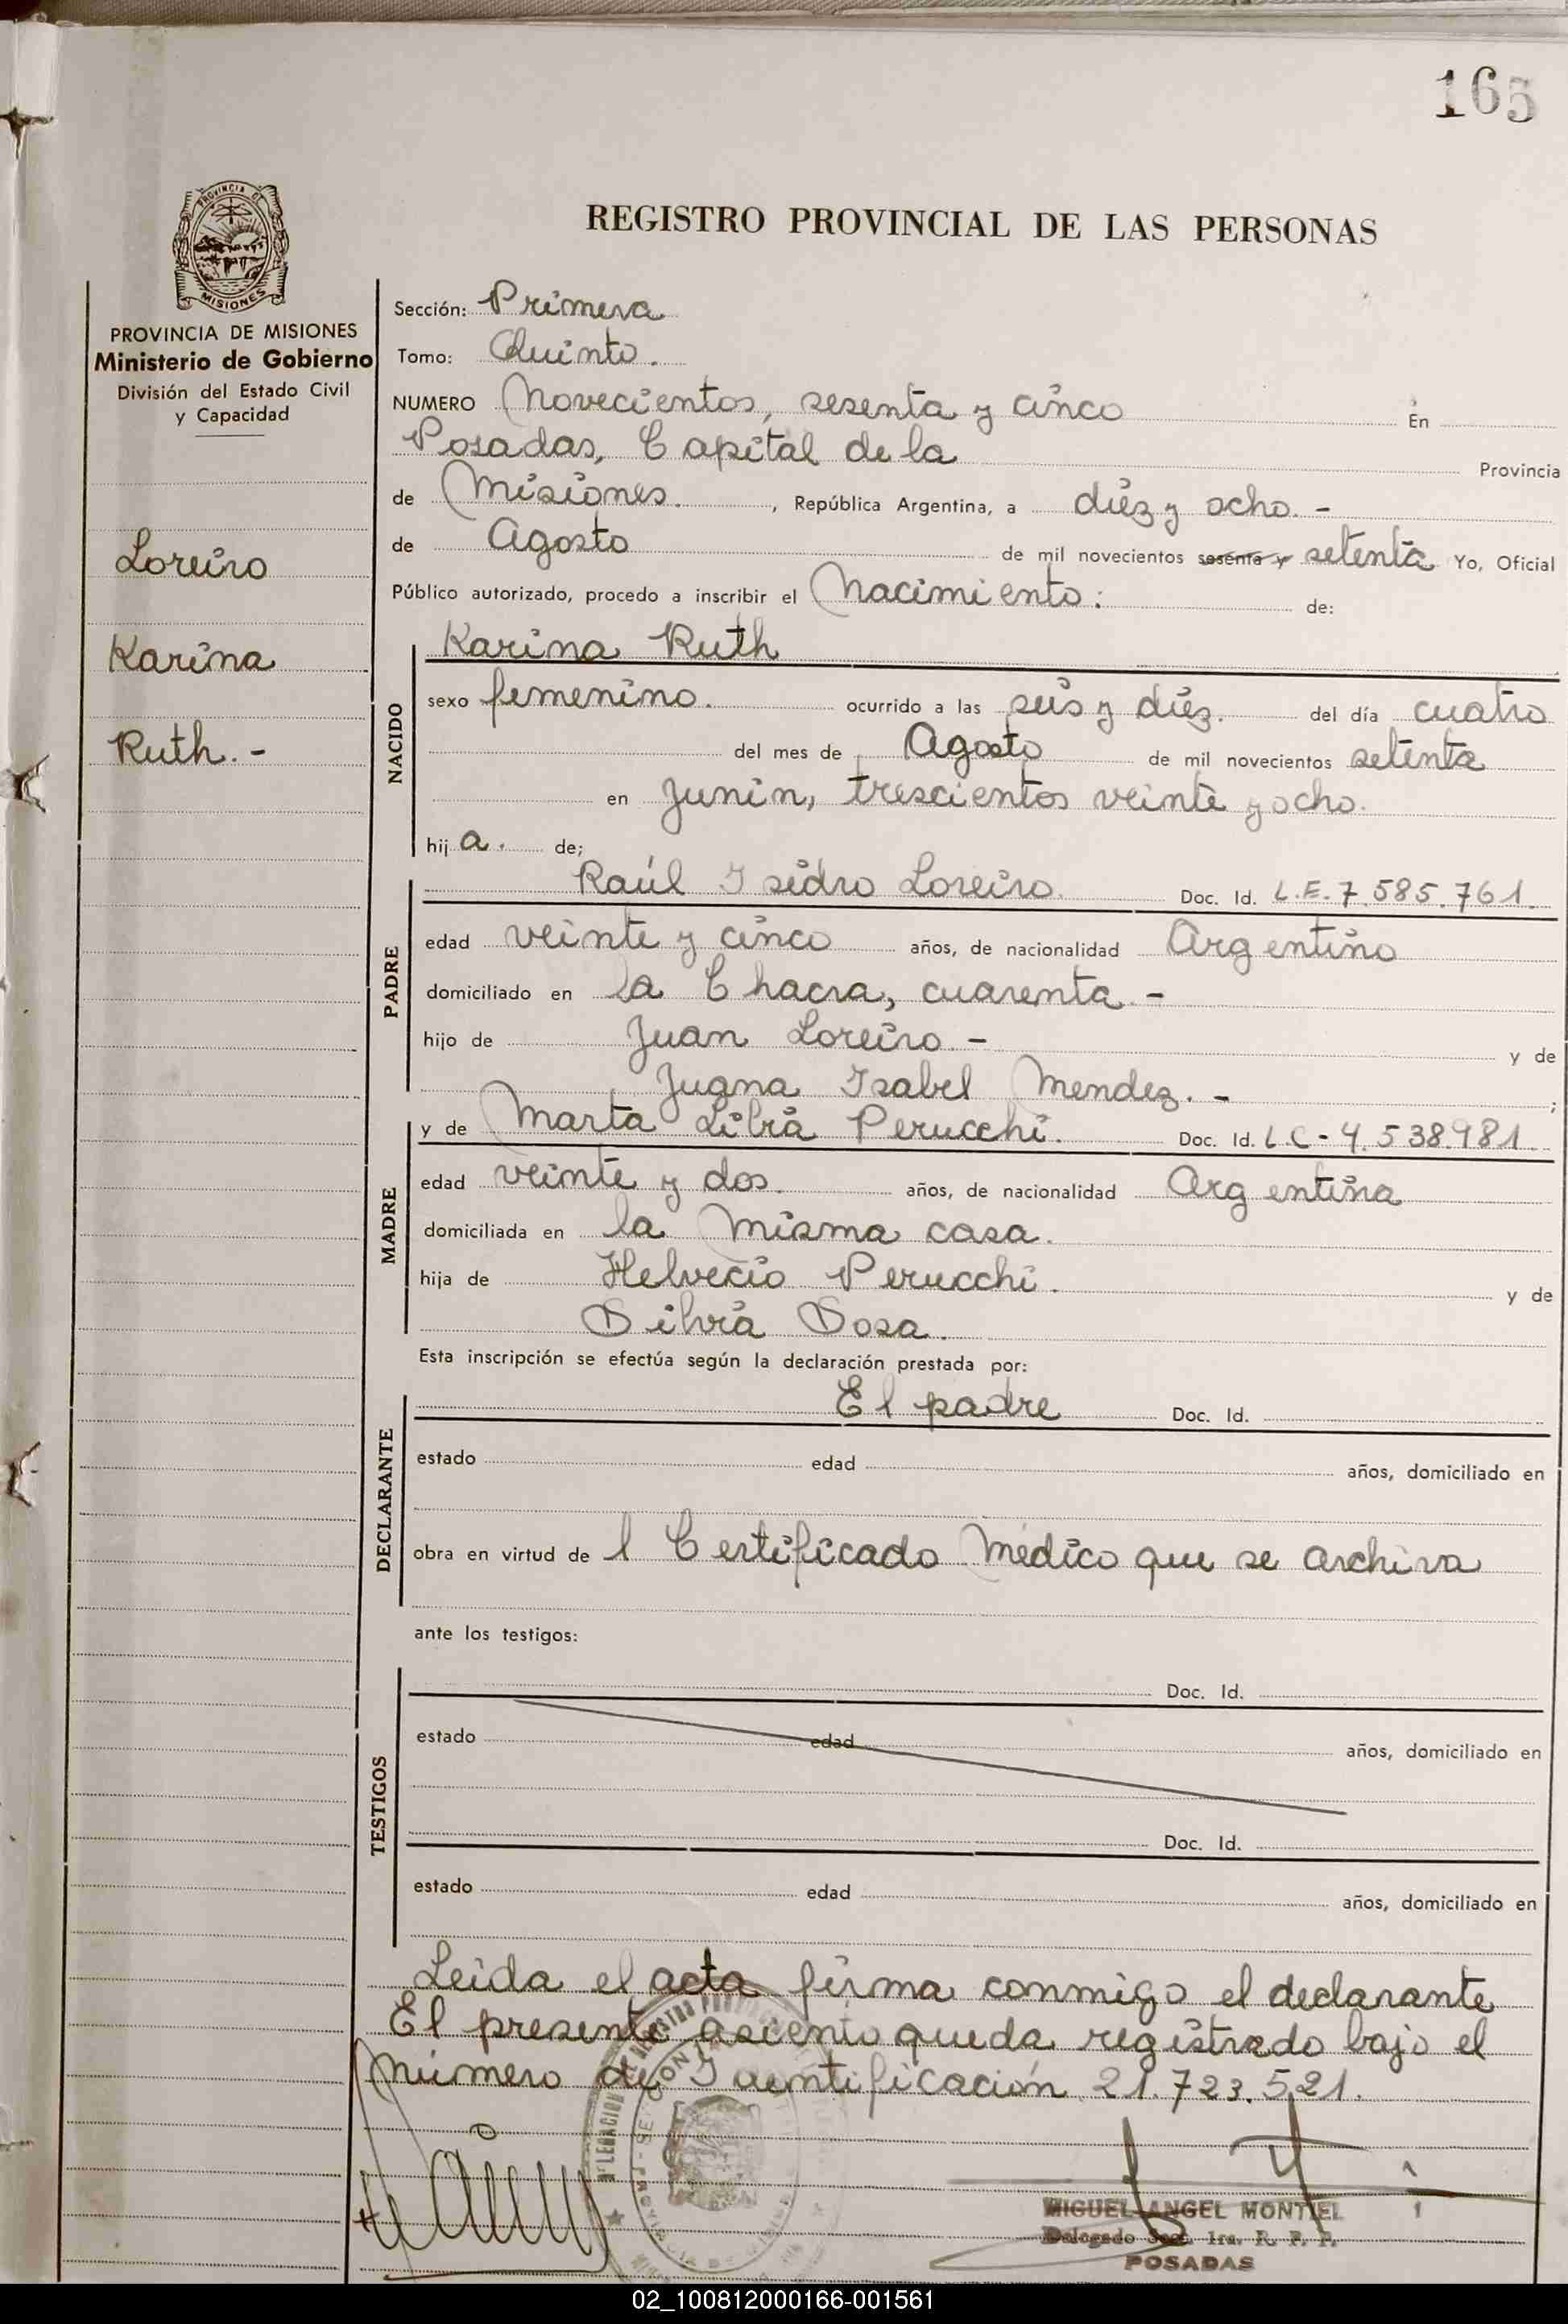 165
PROVINCIA DE
MISIONES
REGISTRO PROVINCIAL DE LAS PERSONAS
PROVINCIA DE MISIONES
Ministerio de Gobierno
División del Estado Civil
y Capacidad
Loreiro
Karina
Ruth.-
Sección: Primera
Tomo: Quinto.
NUMERO Novecientos, sesenta y cinco En
Posadas, Capital de la Provincia
de Misiones. , República Argentina, a diéz y ocho.-
de Agosto de mil novecientos sesenta y setenta Yo, Oficial
Público autorizado, procedo a inscribir el Nacimiento: de:
NACIDO
Karina Ruth
sexo femenino. ocurrido a las seis y diéz. del día cuatro
del mes de Agosto de mil novecientos setenta
en Junin, trescientos veinte y ocho.
hij a. de;
PADRE
Raúl Isidro Loreiro. Doc. Id. L.E. 7.585.761.
edad veinte y cinco años, de nacionalidad Argentino
domiciliado en la Chacra, cuarenta.-
hijo de Juan Loreiro.- y de
Juana Isabel Mendez.- ;
MADRE
y de Marta Libia Perucchi. Doc. Id. LC-4.538.981
edad veinte y dos. años, de nacionalidad Argentina
domiciliada en la misma casa.
hija de Helvecio Perucchi. y de
Silvia Sosa.
Esta inscripción se efectúa según la declaración prestada por:
DECLARANTE
El padre Doc. Id.
estado edad años, domiciliado en
obra en virtud de l Certificado Médico que se archiva
ante los testigos:
TESTIGOS
Doc. Id.
estado edad años, domiciliado en
Doc. Id.
estado edad años, domiciliado en
Leida el acta firma conmigo el declarante
El presente asiento queda registrado bajo el
número de Identificación 21.723.521.
MIGUEL ANGEL MONTIEL
Delegado Secc. 1ra. R. P. P.
POSADAS
02_100812000166-001561